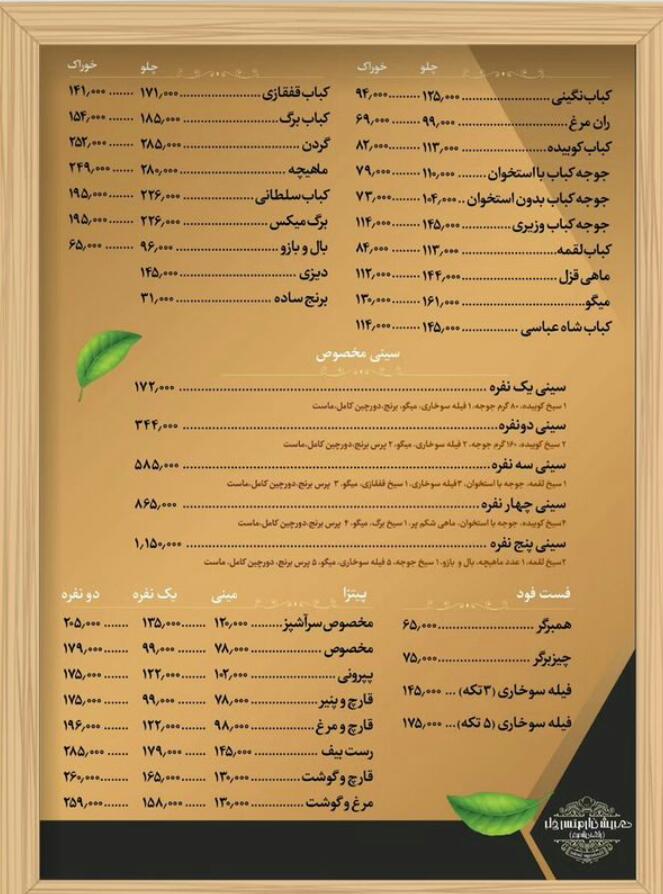 چلو خوراک
کباب نگینی ۱۲۵٫۰۰۰ ۹۴٫۰۰۰
ران مرغ ۹۹٫۰۰۰ ۶۹٫۰۰۰
کباب کوبیده ۱۱۳٫۰۰۰ ۸۲٫۰۰۰
جوجه کباب با استخوان ۱۱۰٫۰۰۰ ۷۹٫۰۰۰
جوجه کباب بدون استخوان ۱۰۴٫۰۰۰ ۷۳٫۰۰۰
جوجه کباب وزیری ۱۴۵٫۰۰۰ ۱۱۴٫۰۰۰
کباب لقمه ۱۱۳٫۰۰۰ ۸۴٫۰۰۰
ماهی قزل ۱۴۴٫۰۰۰ ۱۱۲٫۰۰۰
میگو ۱۶۱٫۰۰۰ ۱۳۰٫۰۰۰
کباب شاه عباسی ۱۴۵٫۰۰۰ ۱۱۴٫۰۰۰
چلو خوراک
کباب قفقازی ۱۷۱٫۰۰۰ ۱۴۱٫۰۰۰
کباب برگ ۱۸۵٫۰۰۰ ۱۵۴٫۰۰۰
گردن ۲۸۵٫۰۰۰ ۲۵۲٫۰۰۰
ماهیچه ۲۸۰٫۰۰۰ ۲۴۹٫۰۰۰
کباب سلطانی ۲۲۶٫۰۰۰ ۱۹۵٫۰۰۰
برگ میکس ۲۲۶٫۰۰۰ ۱۹۵٫۰۰۰
بال و بازو ۹۶٫۰۰۰ ۶۵٫۰۰۰
دیزی ۱۴۵٫۰۰۰
برنج ساده ۳۱٫۰۰۰
سینی مخصوص
سینی یک نفره ۱۷۲٫۰۰۰
۱ سیخ کوبیده، ۸۰ گرم جوجه، ۱ فیله سوخاری، میگو، برنج،دورچین کامل،ماست
سینی دونفره ۳۴۴٫۰۰۰
۲ سیخ کوبیده، ۱۶۰گرم جوجه، ۲ فیله سوخاری، میگو، ۲ پرس برنج،دورچین کامل،ماست
سینی سه نفره ۵۸۵٫۰۰۰
۱ سیخ لقمه، جوجه با استخوان، ۳فیله سوخاری، ۱ سیخ قفقازی، میگو، ۳ پرس برنج،دورچین کامل،ماست
سینی چهار نفره ۸۶۵٫۰۰۰
۴سیخ کوبیده، جوجه با استخوان، ماهی شکم پر، ۱ سیخ برگ، میگو، ۴ پرس برنج،دورچین کامل،ماست
سینی پنج نفره ۱٫۱۵۰٫۰۰۰
۲سیخ لقمه، ۱ عدد ماهیچه، بال و بازو، ۱ سیخ جوجه، ۵ فیله سوخاری، میگو، ۵ پرس برنج، دورچین کامل، ماست
فست فود
همبرگر ۶۵٫۰۰۰
چیزبرگر ۷۵٫۰۰۰
فیله سوخاری (۳ تکه) ۱۴۵٫۰۰۰
فیله سوخاری (۵ تکه) ۱۷۵٫۰۰۰
پیتزا مینی یک نفره دو نفره
مخصوص سرآشپز ۱۲۰٫۰۰۰ ۱۳۵٫۰۰۰ ۲۰۵٫۰۰۰
مخصوص ۷۸٫۰۰۰ ۹۹٫۰۰۰ ۱۷۹٫۰۰۰
پپرونی ۱۰۲٫۰۰۰ ۱۲۲٫۰۰۰ ۱۷۵٫۰۰۰
قارچ و پنیر ۷۸٫۰۰۰ ۹۹٫۰۰۰ ۱۷۵٫۰۰۰
قارچ و مرغ ۹۸٫۰۰۰ ۱۲۲٫۰۰۰ ۱۹۶٫۰۰۰
رست بیف ۱۴۵٫۰۰۰ ۱۷۹٫۰۰۰ ۲۸۵٫۰۰۰
قارچ و گوشت ۱۳۰٫۰۰۰ ۱۶۵٫۰۰۰ ۲۶۰٫۰۰۰
مرغ و گوشت ۱۳۰٫۰۰۰ ۱۵۸٫۰۰۰ ۲۵۹٫۰۰۰